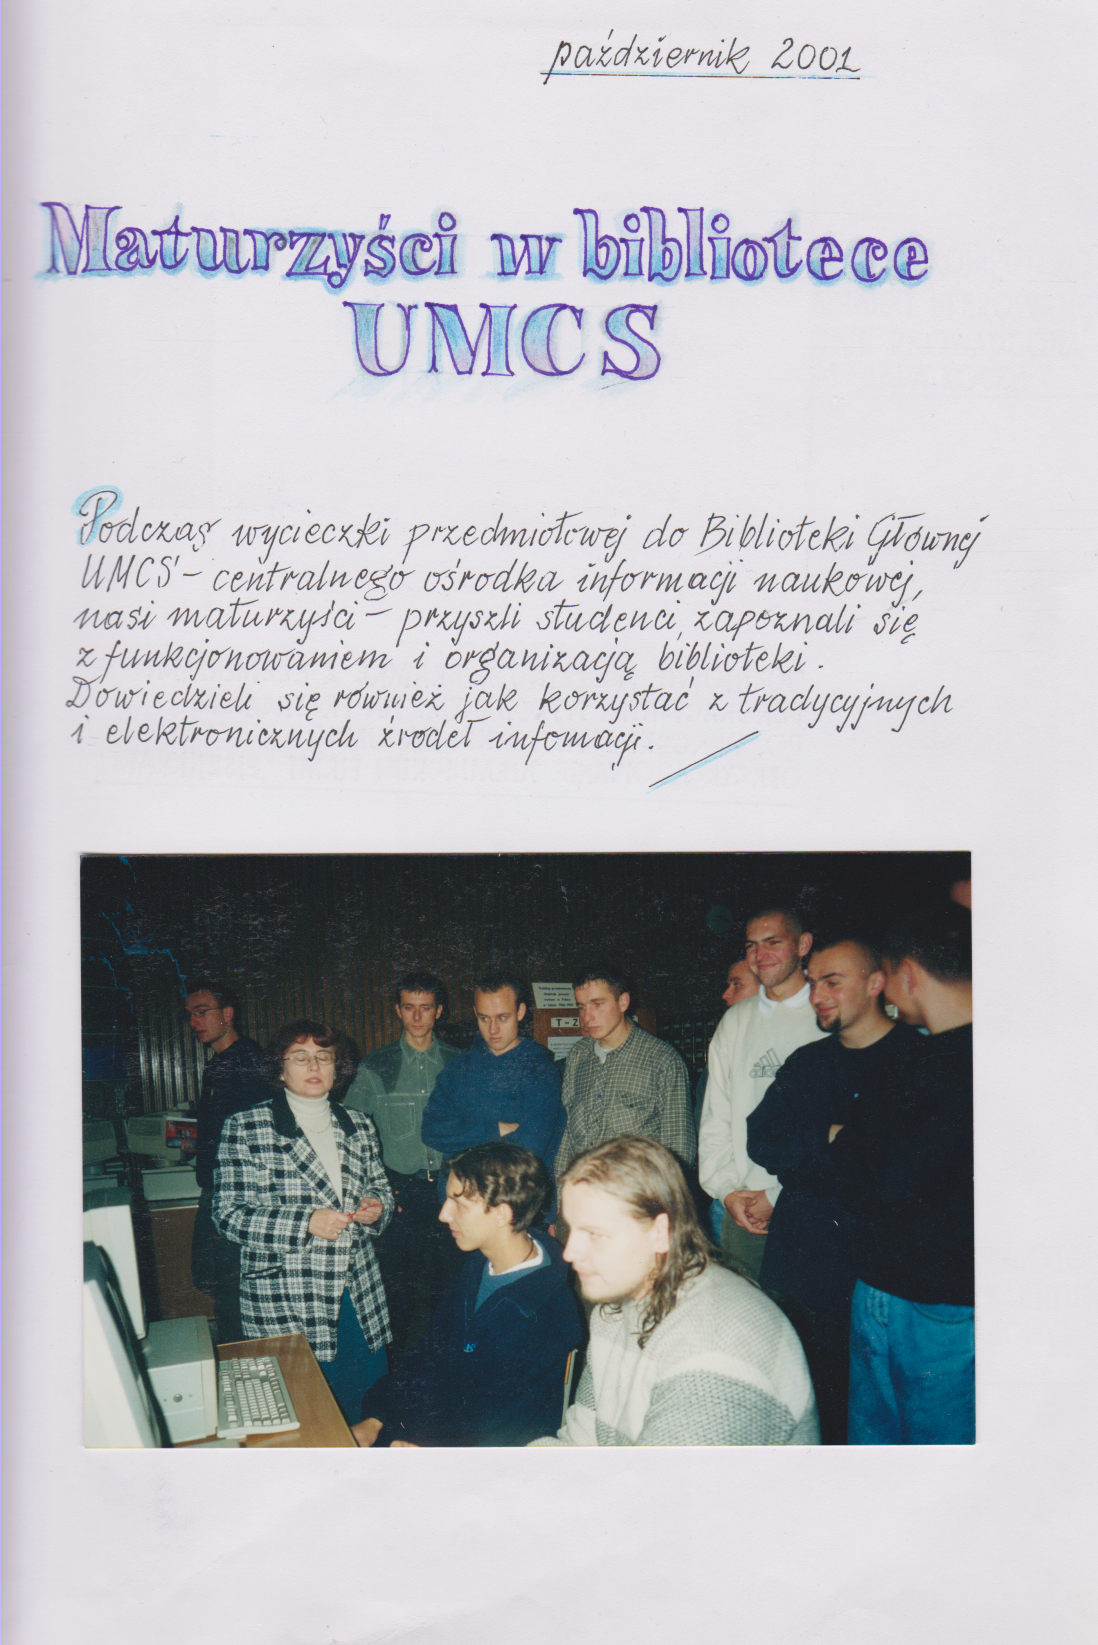 październik 2001
Maturzyści w bibliotece
UMCS
Podczas wycieczki przedmiotowej do Biblioteki Głównej
UMCS – centralnego ośrodka informacji naukowej,
nasi maturzyści – przyszli studenci, zapoznali się
z funkcjonowaniem i organizacją biblioteki.
Dowiedzieli się również jak korzystać z tradycyjnych
i elektronicznych źrodeł infomacji.
T-Z